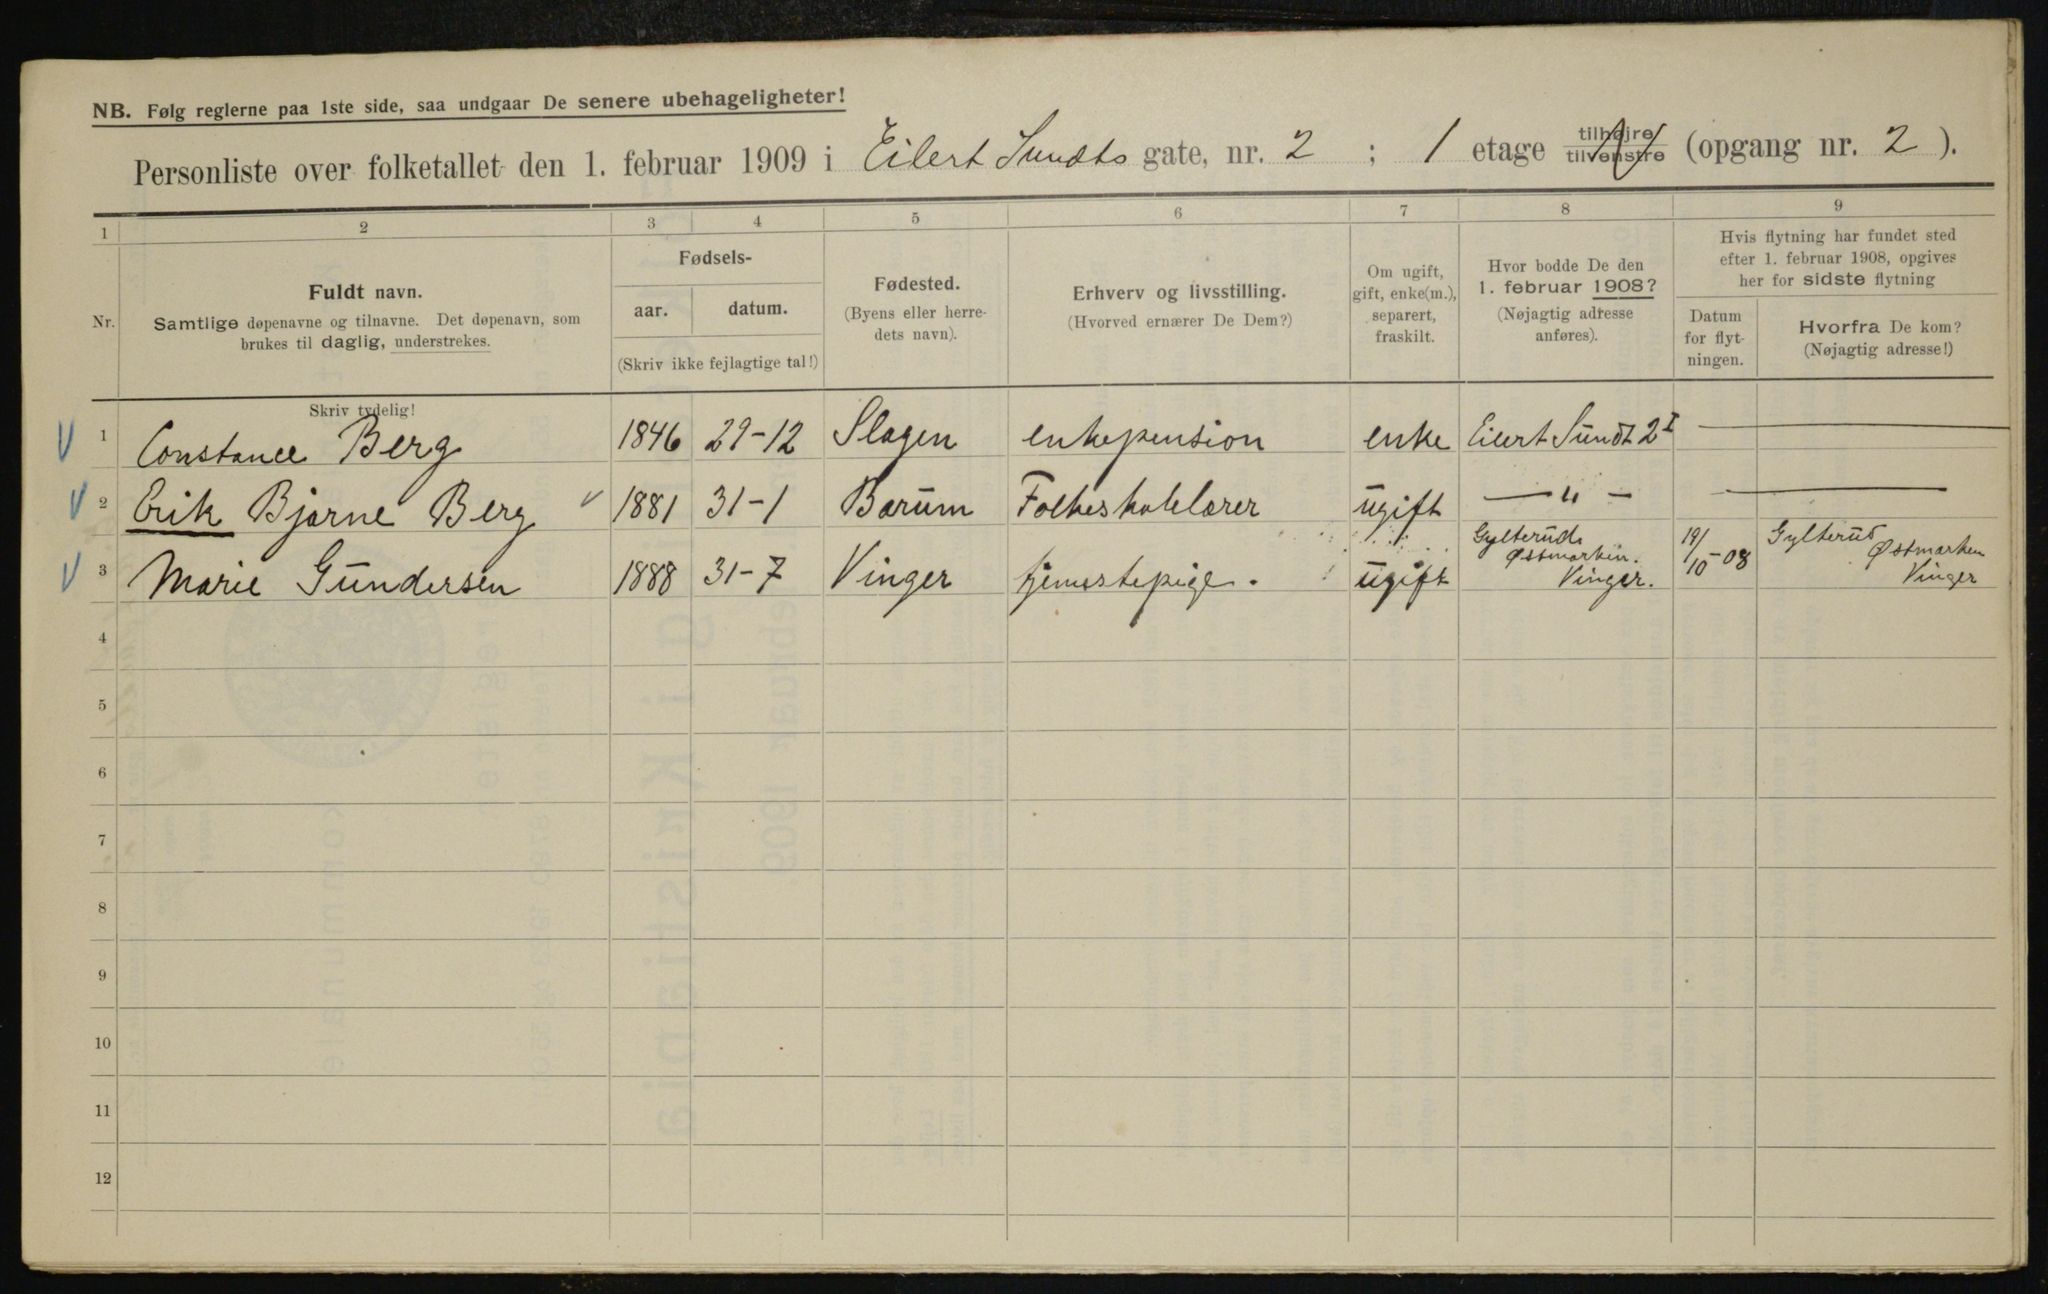 NB. Følg reglerne paa 1ste side, saa undgaar De senere ubehageligheter!
Personliste over folketallet den 1. februar 1909 i Eilert Sundts gate, nr. 2 ; 1 etage tilhøjre tilvenstre (opgang nr. 2 ).
1 2 3 4 5 6 7 8 9
Nr.
Fuldt navn.
Samtlige døpenavne og tilnavne. Det døpenavn, som
brukes til daglig, understrekes.
Skriv tydelig!
Fødsels-
aar. datum.
(Skriv ikke fejlagtige tal!)
Fødested.
(Byens eller herre-
dets navn).
Erhverv og livsstilling.
(Hvorved ernærer De Dem?)
Om ugift,
gift, enke(m.),
separert,
fraskilt.
Hvor bodde De den
1. februar 1908?
(Nøjagtig adresse
anføres).
Hvis flytning har fundet sted
efter 1. februar 1908, opgives
her for sidste flytning
Datum
for flyt-
ningen.
Hvorfra De kom?
(Nøjagtig adresse!)
1 Constance Berg 1846 29-12 Slagen enkepension enke Eilert Sundt 2 I —
2 Erik Bjarne Berg 1881 31-1 Barum Folkeskolelærer ugift — " — —
3 Marie Gundersen 1888 31-7 Vinger tjenestepige. ugift Gylterud Østmarken. Vinger. 19/10-08 Gylterud Østmarken Vinger
4
5
6
7
8
9
10
11
12